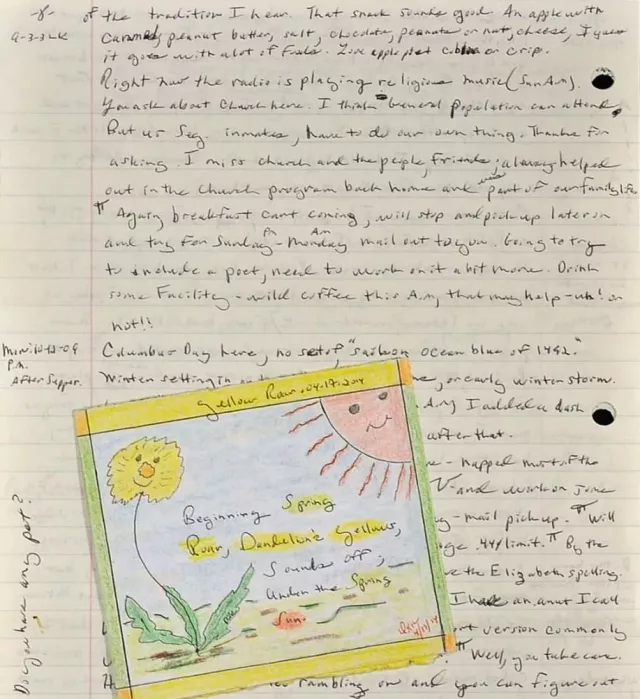 -8-
of the tradition I hear. That snack sounds good. An apple with
caramel, peanut butter, salt, chocolate, peanuts or nut, cheese, I guess
it goes with a lot of foods. Love apple pie or crisp.
Right now the radio is playing religious music (Sun A.m).
You ask about Church here. I think General population can attend,
But us Seg. inmates, have to do our own thing. Thanks for
asking. I miss church and the people, friends; always helped
out in the Church program back home and was part of our family life
¶ Again, breakfast cart coming, will stop and pick up later on
and try for Sunday Pm - Monday Am mail out to you. Going to try
to include a poet, need to work on it a bit more. Drink
some Facility-wild coffee this A.m, that may help-uh! or
not!!
10-12-09
P.m.
After Supper.
Columbus Day here, no set of "sail on ocean blue of 1492."
Winter setting in or early winter storm.
A.m) I added a dash
after that.
- napped most of the
and work on some
- mail pick up. ¶ Will
.44 limit. ¶ By the
the Elizabeth spelling.
I have an aunt I call
version commonly
¶ Well, you take care.
rambling on and you can figure out
Do you have any pet?
Yellow Roar. 04-17-2014
Beginning Spring
Roar, Dandelion's Yellows,
Sounds off;
Under the Spring
Sun.